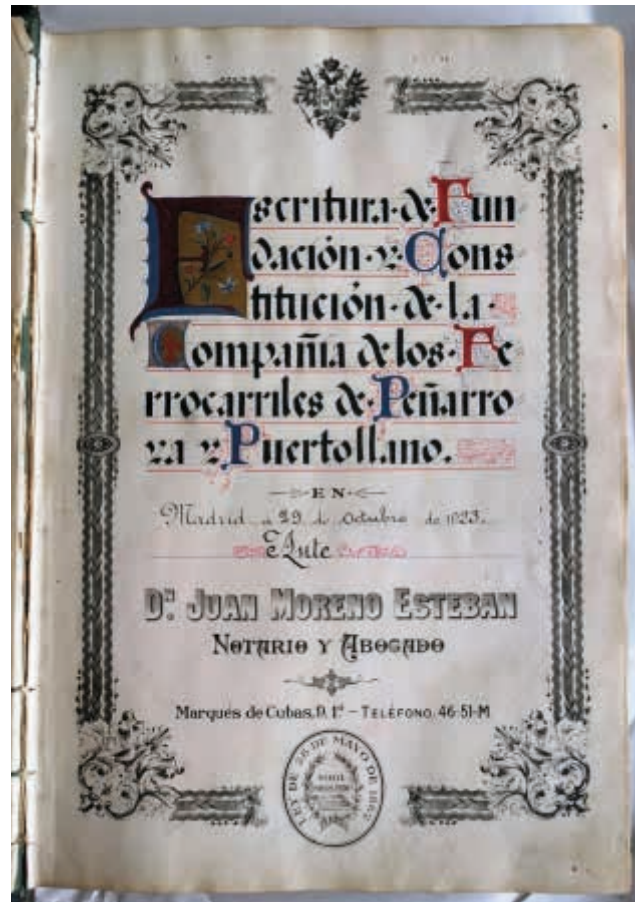 Escritura de Fun
dación y Cons
titución de la
Compañia de los Fe
rrocarriles de Peñarro
ya y Puertollano.
EN
Madrid a 29 de Octubre de 1923.
Ante
Dn. JUAN MORENO ESTEBAN
NOTARIO Y ABOGADO
Marqués de Cubas, 9, 1º - TELÉFONO, 46-51-M
LEY DE 28 DE MAYO DE 1862